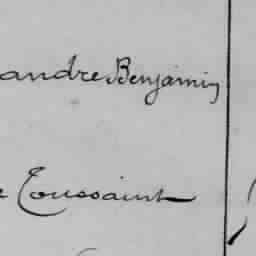 andre Benjamin
e Toussaint